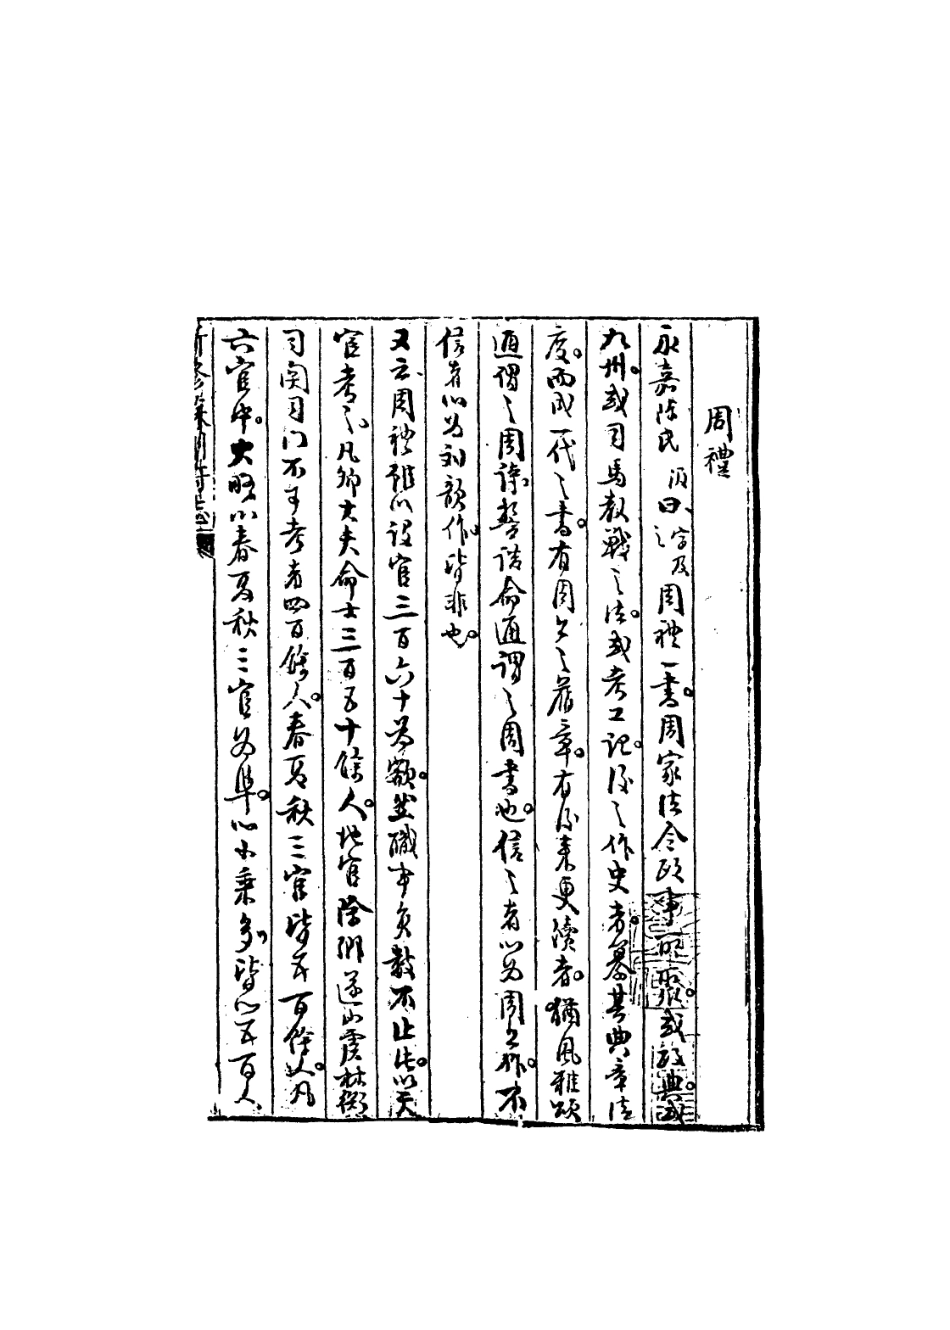 周禮
永嘉陳氏汲曰之字及周禮一書周家法令政事所聚或政典或
九州或司馬教戰之法或考工記後之作史者纂其典章法
度而成一代之書有周公之舊章有後來更續者猶風雅頌
通謂之周詩誓誥命通謂之周書也信之者以為周公作不
信者以為劉歆作皆非也
又云周禮雖以設官三百六十為額並職事員數不止此以天
官考之凡卿大夫命士三百五十餘人地官除鄉遂山虞林衡
司關司門不可考者四百餘人春夏秋三官皆五百餘人凡
六官中大略以春夏秋三官為準以小乘多皆以五百人